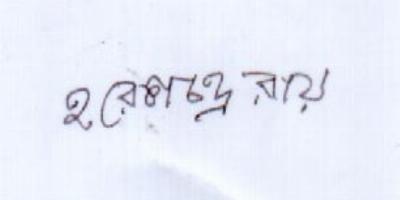 হরেশচন্দ্র রায়